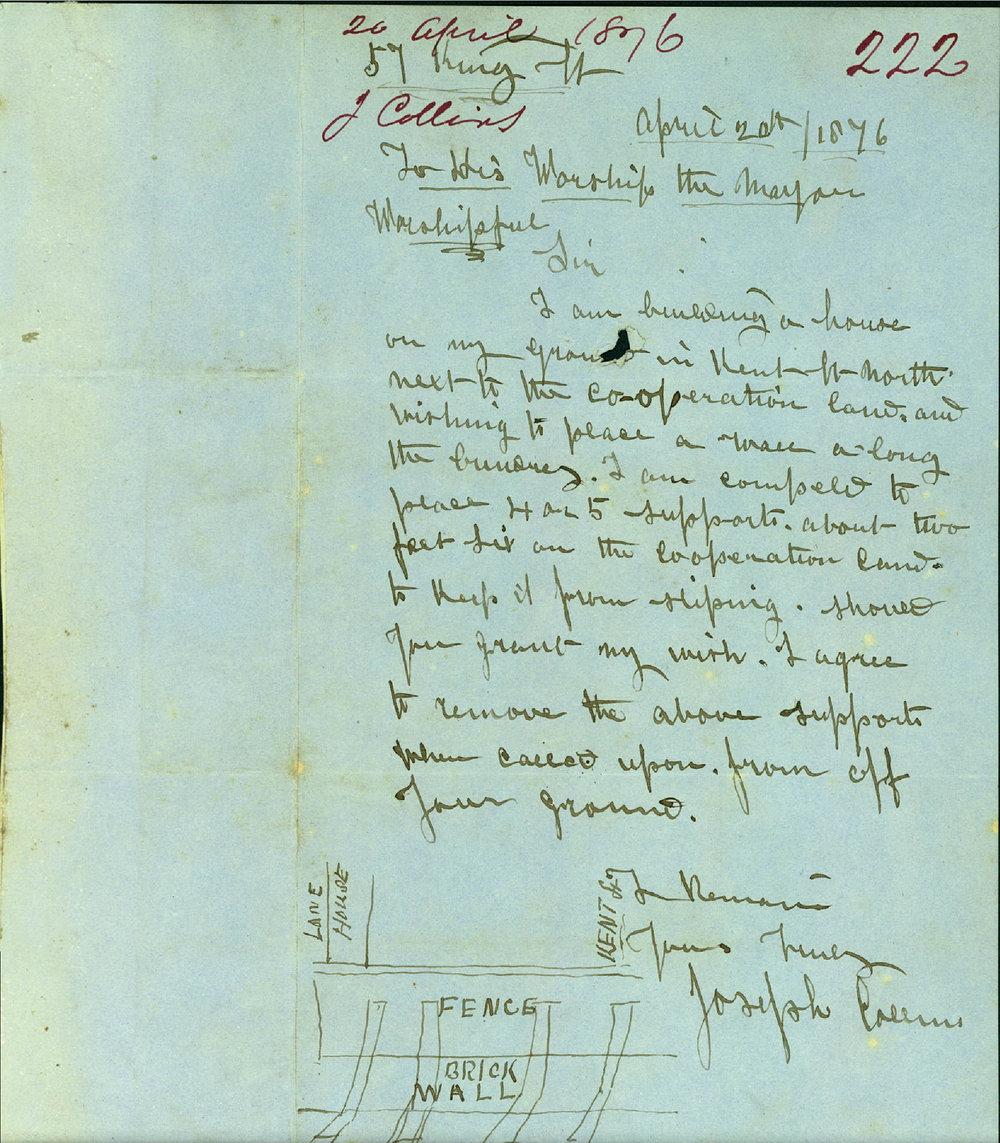 20 April 1876
222
57 King St
J Collins
April 20th/1876
To His Worship the Mayor
Worshipful
Sir
I am building a house
on my ground in Kent St North
next to the Co-operation land. and
wishing to place a wall a long
the bundrey. I am compeld to
place 4 or 5 supports. about two
feet six on the Cooperation land.
to keep it from sliping. Should
you grant my wish. I agree
to remove the above supports
when called upon. from off
your ground.
I Remain
Yours Truly
Joseph Collins
LANE
HOUSE
KENT ST
FENCE
BRICK
WALL